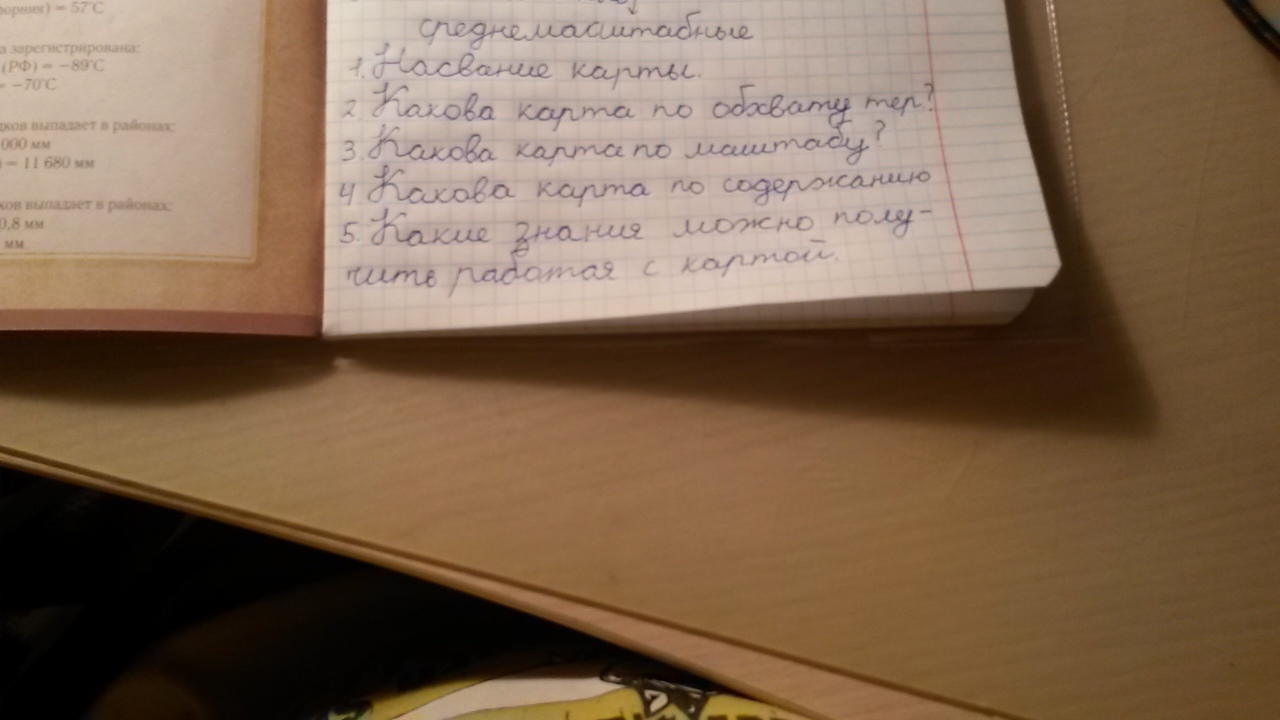 орния) = 57°C
а зарегистрирована:
(РФ) = −89°C
= −70°C
дков выпадает в районах:
000 мм
) = 11 680 мм
ков выпадает в районах:
0,8 мм
мм
среднемасштабные
1. Насвание карты.
2 Какова карта по обхвату тер?
3. Какова карта по маштабу?
4 Какова карта по содержанию
5. Какие знания можно полу-
чить работая с картой.